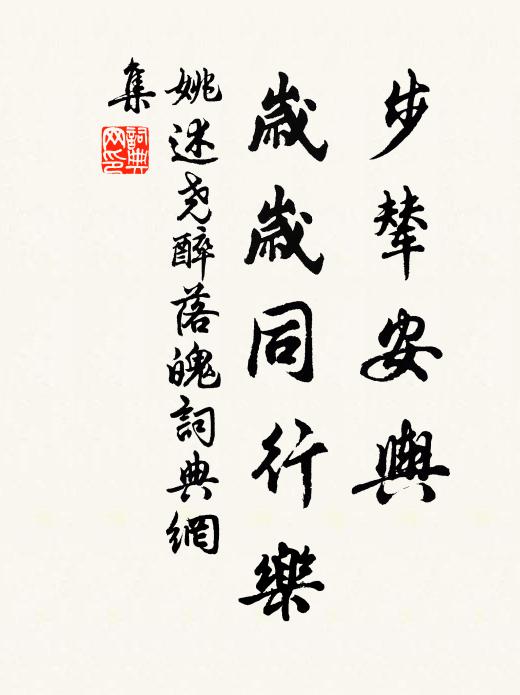 步輦安輿
歲歲同行樂
姚述尧醉落魄詞典網
集
詞典
网印